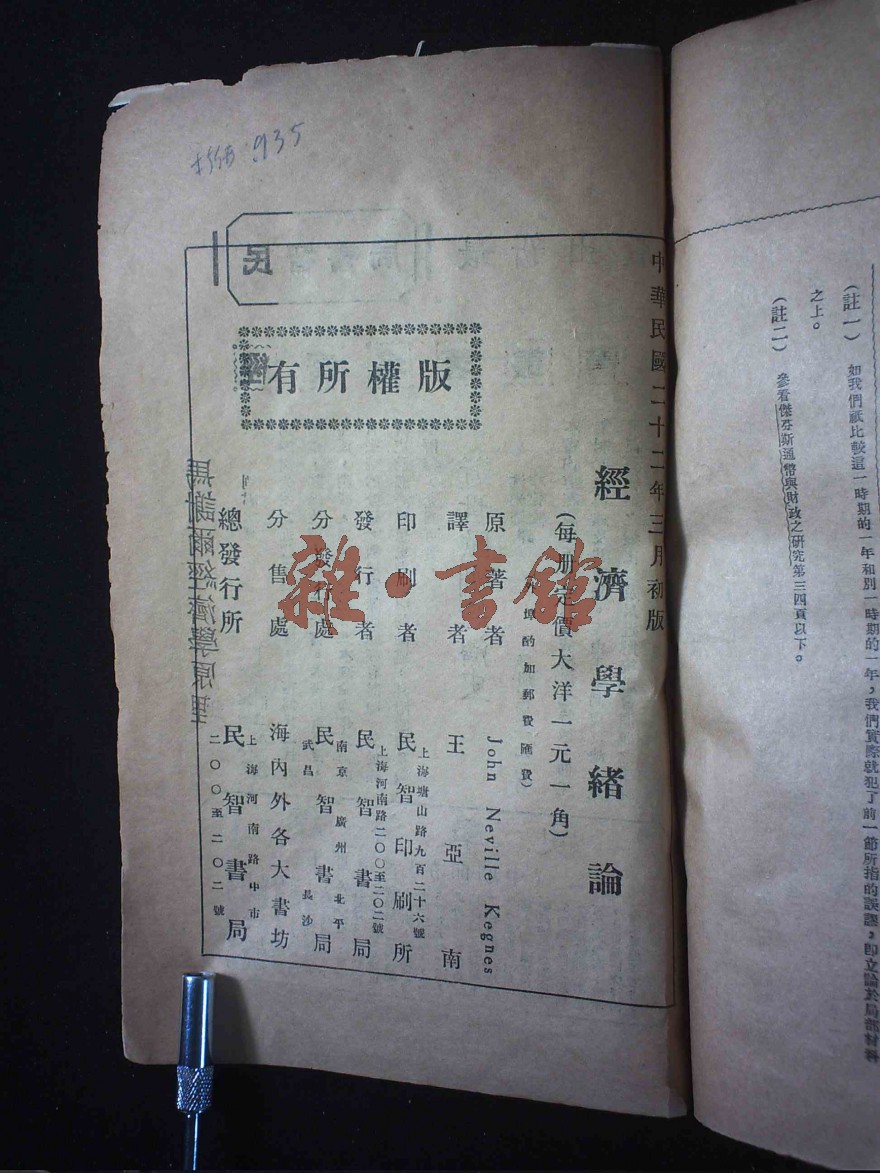 如我們祇比較這一時期的一年和別一時期的一年，我們實際就犯了前一節所指的誤謬，即立論於局部材料
(註一)
之上。
(註二) 參看傑芬斯通幣與財政之研究第三四頁以下。
935
中華民國二十二年三月初版
經濟學緒論
(每册定價大洋一元一角)
埠酌加郵費匯費)
版權所有
原著者 John Neville Kegnes
譯者 王亞南
印刷者 上海塘山路九百二十六號 民智印刷所
發行者 上海河南路二〇〇至二〇二號 民智書局
分發行處 南京 廣州 北平 武昌 長沙 民智書局
分售處 海內外各大書坊
總發行所 上海河南路中市 二〇〇至二〇二號 民智書局
雜·書館
馬謝爾經濟學原理
民